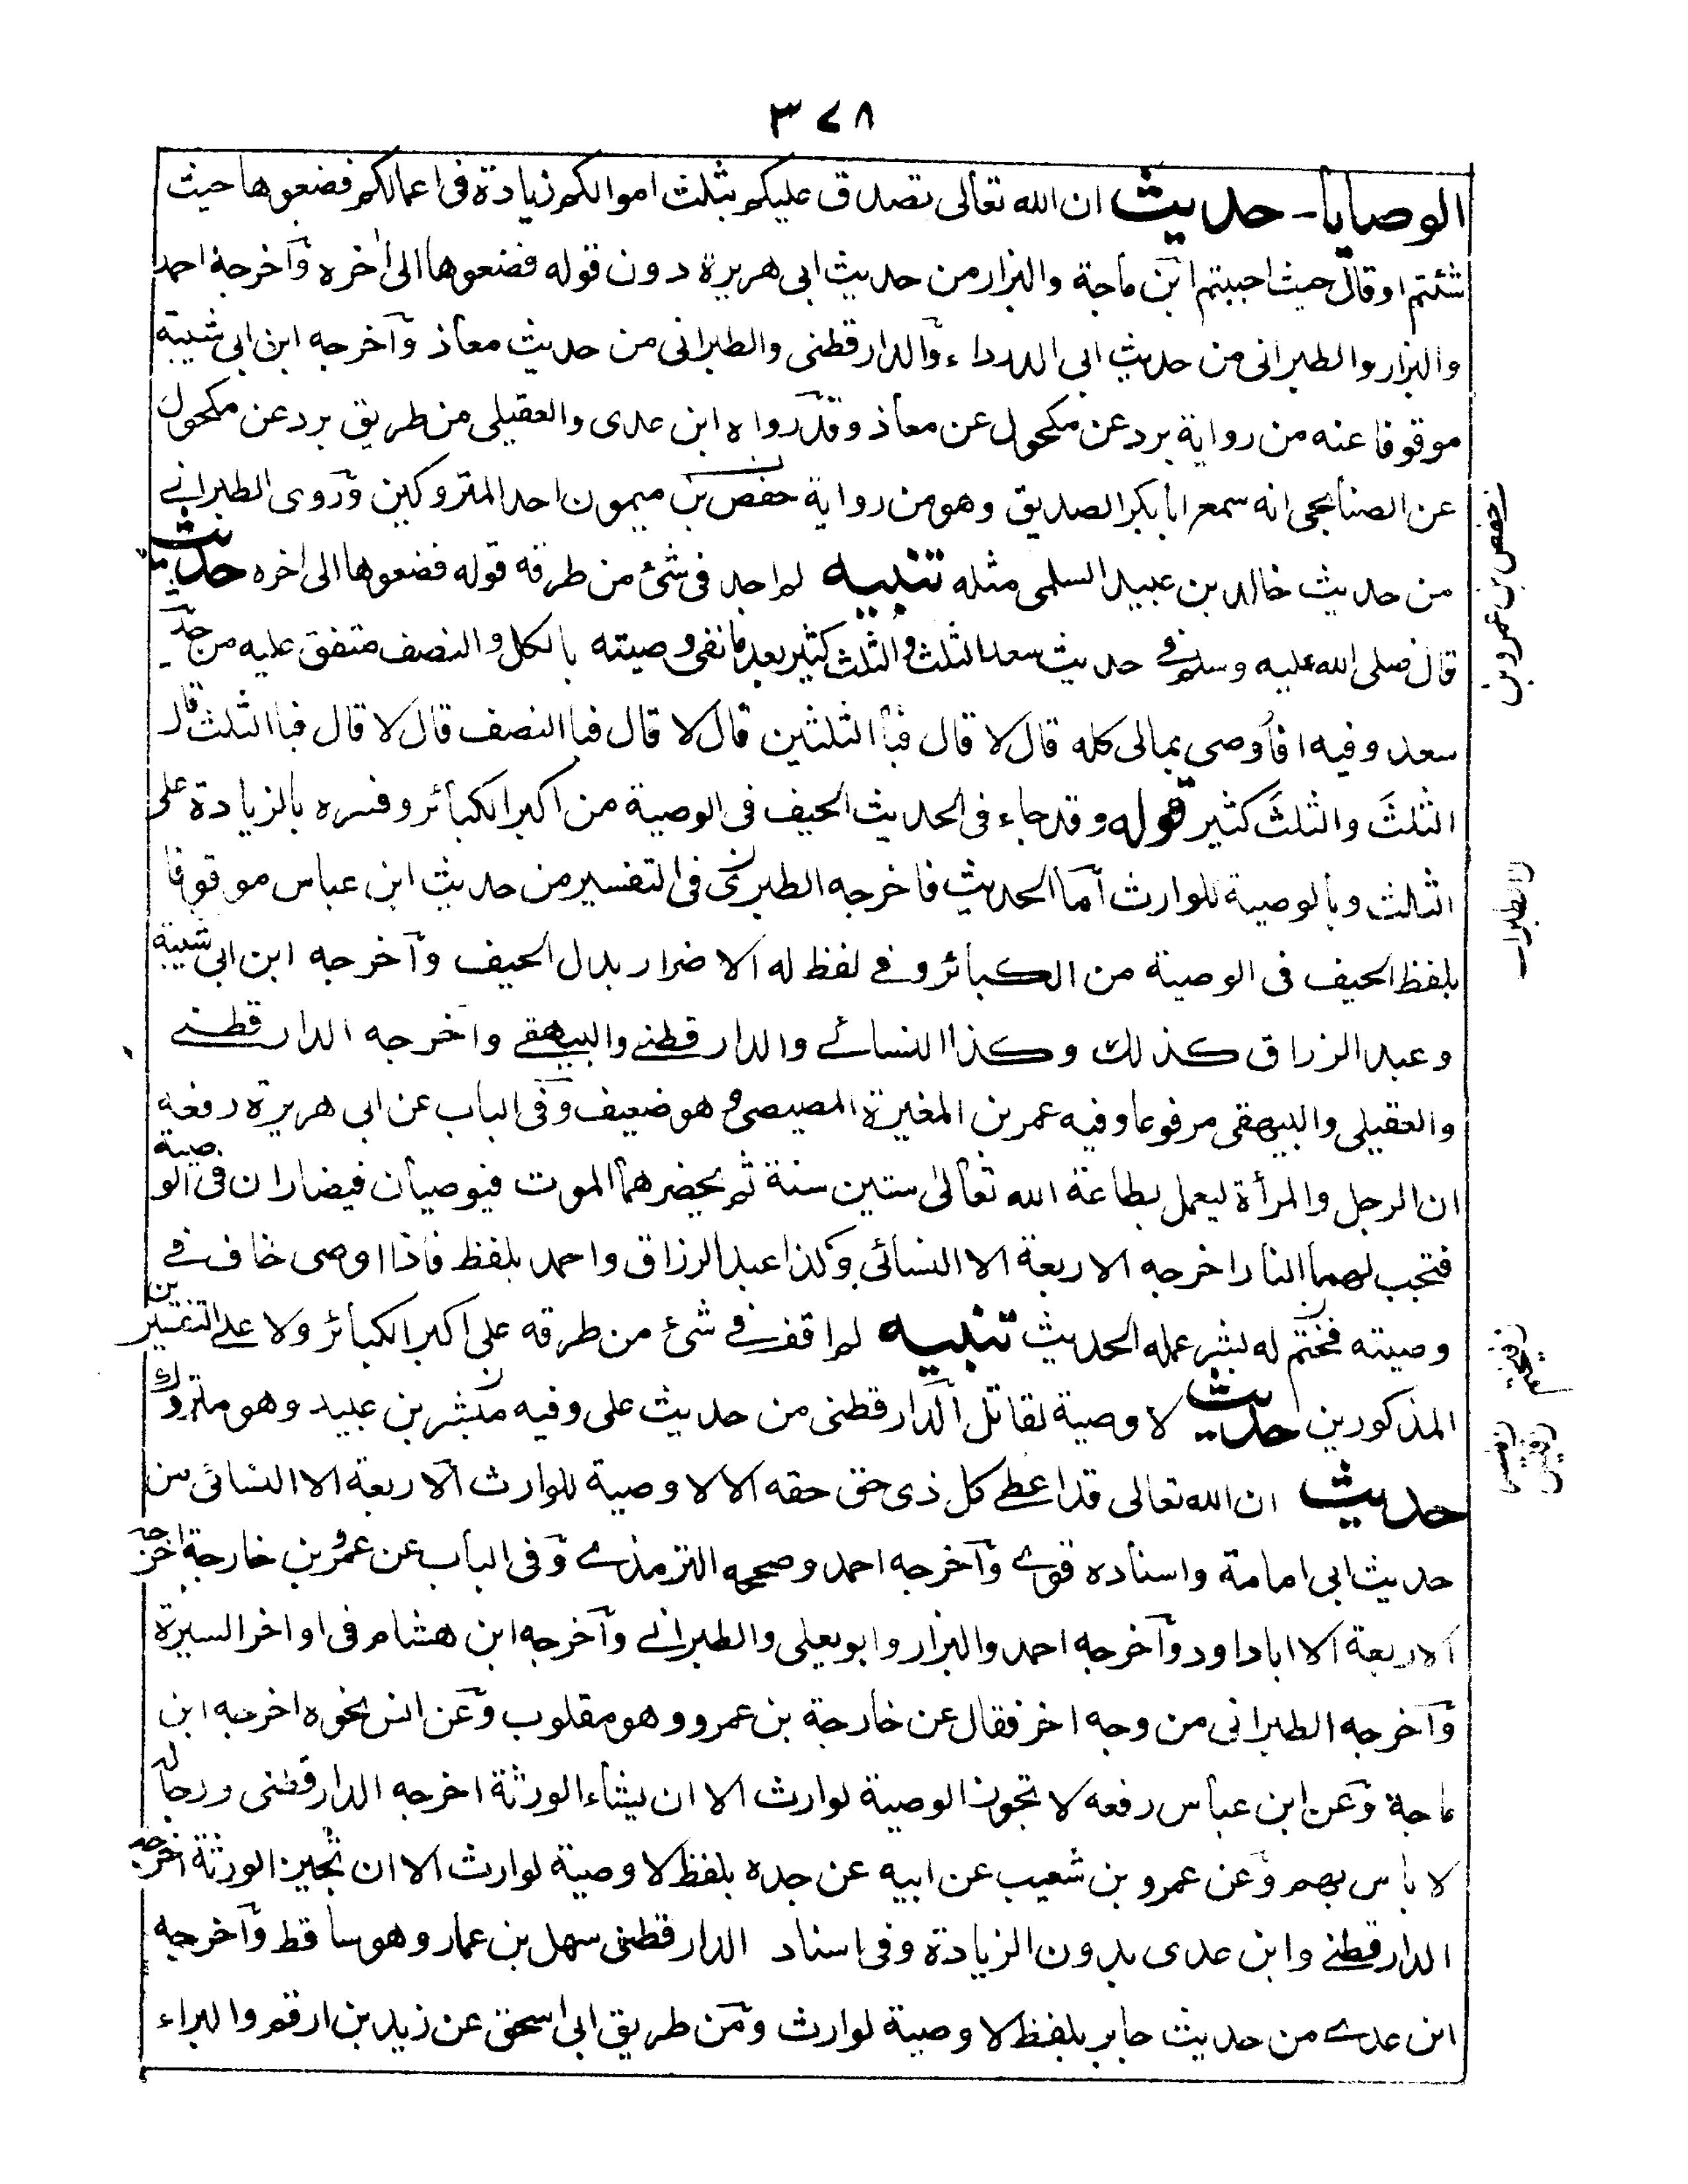 ٣٧٨
الوصايا - حديث ان الله تعالى تصدق عليكم بثلث اموالكم زيادة فى اعمالكم فضعوها حيث
شئتم او قال حيث احببتم ابن ماجة والبزار من حديث ابى هريرة دون قوله فضعوها الى اخره وآخرجه احمد
والبزار والطبرانى من حديث ابى الدرداء والدارقطنى والطبرانى من حديث معاذ وآخرجه ابن ابى شيبة
موقوفا عنه من رواية برد عن مكحول عن معاذ وقد رواه ابن عدى والعقيلى من طريق برد عن مكحول
عن الصنابحى انه سمع ابا بكر الصديق وهو من رواية حفص بن ميمون احد المتروكين وروى الطبرانے
من حديث خالد بن عبيد السلمى مثله تنبيه لم اجد فى شئ من طرقه قوله فضعوها الى اخره حديث
قال صلى الله عليه وسلم فى حديث سعد الثلث والثلث كثير بعد ما نفى وصيته بالكل والنصف متفق عليه من حديث
سعد وفيه افأوصى بمالى كله قال لا قال فبا الثلثين قال لا قال فبا النصف قال لا قال فبا الثلث قال
الثلثَ والثلثَ كثير قوله وقد جاء فى الحديث الحيف فى الوصية من اكبر الكبائر وفسره بالزيادة على
الثلث وبالوصية للوارث آما الحديث فاخرجه الطبرى فى التفسير من حديث ابن عباس موقوفا
بلفظ الحيف فى الوصية من الكبائر وفے لفظ له الاضرار بدل الحيف وآخرجه ابن ابى شيبة
وعبد الرزاق كذلك وكذا النسائے والدارقطنے والبيهقے واخرجه الدارقطنے
والعقيلى والبيهقى مرفوعا وفيه عمر بن المغيرة المصيصى وهو ضعيف وفى الباب عن ابى هريرة رفعه
ان الرجل والمرأة ليعمل بطاعة الله تعالىٰ ستين سنة ثم يحضرهما الموت فيوصيان فيضاران فى الوصية
فتجب لهما النار اخرجه الاربعة الا النسائى وكذا عبد الرزاق واحمد بلفظ فاذا اوصى خاف فے
وصيته فختم له بشر عمله الحديث تنبيه لم اقف فے شئ من طرقه على اكبر الكبائر ولا علے التفسيرين
المذكورين حديث لا وصية لقاتل الدارقطنى من حديث على وفيه مبشر بن عبيد وهو متروك
حديث ان الله تعالى قد اعطے كل ذى حق حقه الا لا وصية للوارث الاربعة الا النسائى من
حديث ابى امامة واسناده قوے وآخرجه احمد وصححه الترمذے وفى الباب عن عمرو بن خارجة اخرجه
الاربعة الا ابا داود وآخرجه احمد والبزار وابو يعلى والطبرانے وآخرجه ابن هشام فى اواخر السيرة
وآخرجه الطبرانى من وجه اخر فقال عن خارجة بن عمرو وهو مقلوب وعن انس نحوه اخرجه ابن
ماجة وعن ابن عباس رفعه لا تجوز الوصية لوارث الا ان يشاء الورثة اخرجه الدارقطنى ورجاله
لا باس بهم وعن عمرو بن شعيب عن ابيه عن جده بلفظ لا وصية لوارث الا ان تجيز الورثة اخرجه
الدارقطنے وابن عدى بدون الزيادة وفى اسناد الدارقطنى سهل بن عمار وهو ساقط وآخرجه
ابن عدے من حديث جابر بلفظ لا وصية لوارث ومن طريق ابى اسحق عن زيد بن ارقم والبراء
حفص بن عمرو بن